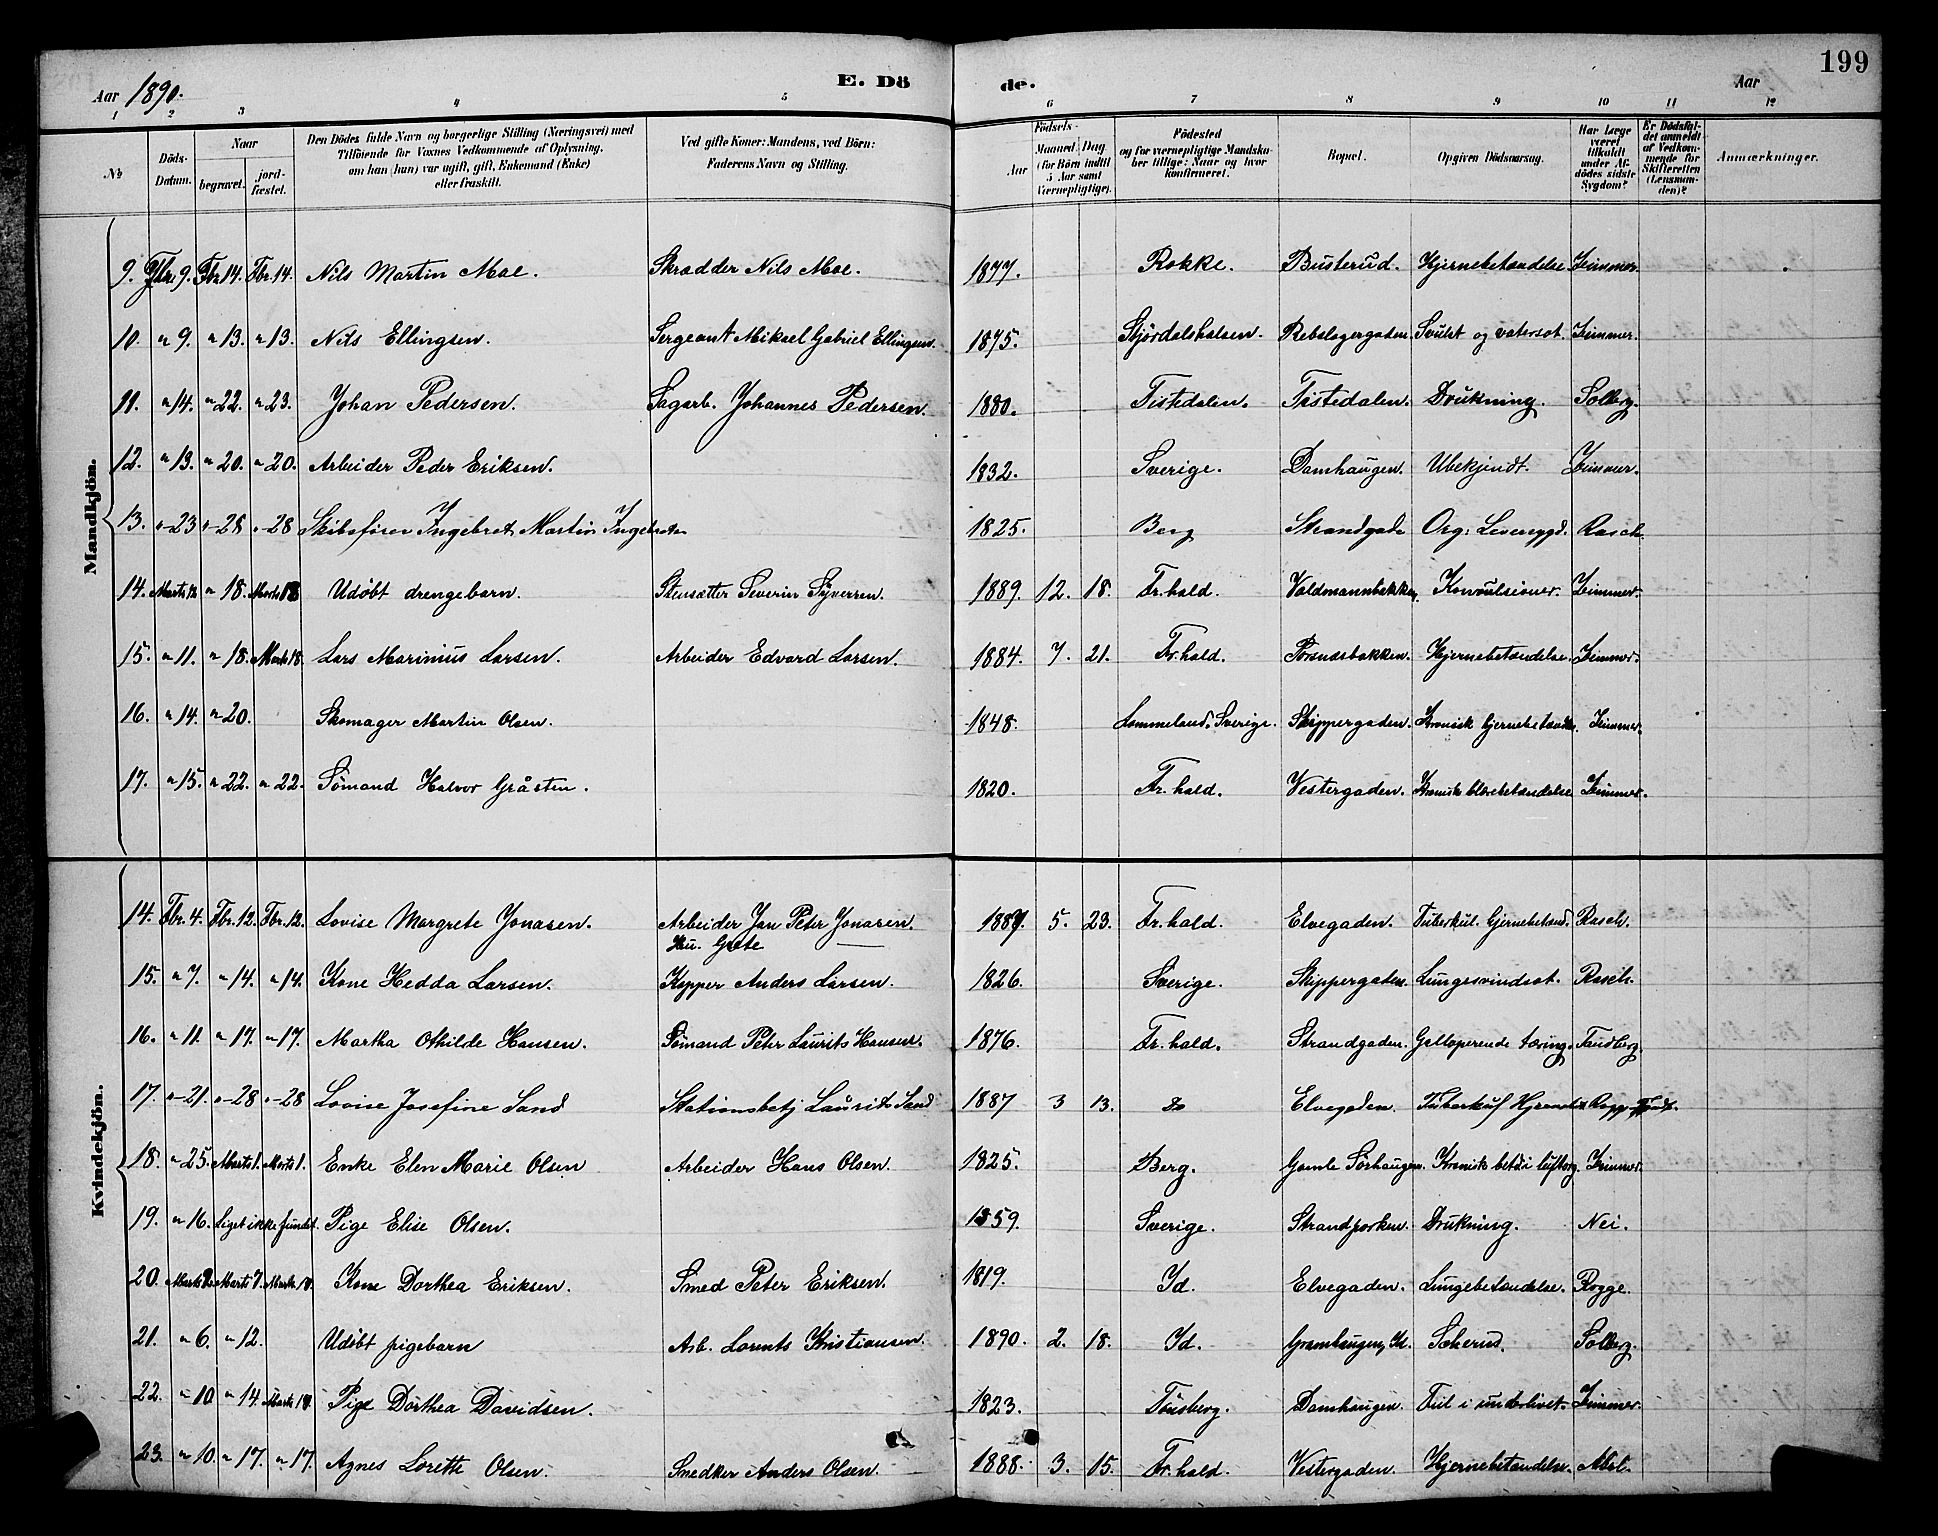 199
Aar 1890. E. Dö de. Aar
1 2 3 4 5 6 7 8 9 10 11 12
No Döds-Datum. Naar begravet. jord-fæstet. Den Dödes fulde Navn og borgerlige Stilling (Næringsvei) med Tilföiende for Voxnes Vedkommende af Oplysning, om han (hun) var ugift, gift, Enkemand (Enke) eller fraskilt. Ved gifte Koner: Mandens, ved Börn: Faderens Navn og Stilling. Födsels- Aar Maaned Dag (for Börn indtil 5 Aar samt Værnepligtige). Födested og for værnepligtige Mandskaber tillige: Naar og hvor konfirmeret. Bopæl. Opgiven Dödsaarsag. Har Læge været tilkaldt under Afdödes sidste Sygdom? Er Dödsfaldet anmeldt af Vedkommende for Skifteretten (Lensmanden)? Anmærkninger.
Mandkjön.
9. Fbr. 9. Fbr. 14. Fbr. 14. Nils Martin Moe. Skrædder Nils Moe. 1877. Rokke. Busterud. Hjernebetændelse. Zimmer.
10. " 9. " 13. " 13. Nils Ellingsen. Sergeant Mikael Gabriel Ellingsen. 1875. Stjördalshalsen. Rebslagergaden. og vatersot. Zimmer.
11. " 14. " 22. " 23. Johan Pedersen. Sagarb. Johannes Pedersen. 1880. Tistedalen. Tistedalen. Drukning. Solberg.
12. " 13. " 20. " 20. Arbeider Peder Eriksen. 1832. Sverige. Damhaugen. Ubekjendt. Zimmer.
13. "-23 "-28 "-28 Skibsfører Ingebret Martin Ingebretsen 1825. Berg Strandgade Org: Rasch
14. Marts 12 " 18. Marts 18 Udøbt drengebarn. Stensætter Severin Syversen. 1889. 12. 18. Fr.hald. Valdmannbekken. Konvulsioner. Zimmer.
15. " 11. " 18. Marts 18. Lars Marinius Larsen. Arbeider Edvard Larsen. 1884. 7. 21. Fr.hald. Porsnæsbakken. Hjernebetændelse. Zimmer.
16. " 14. " 20. Skomager Martin Olsen. 1848. Lommeland, Sverige. Skippergaden. Kronisk hjernebetændelse. Zimmer.
17. " 15. " 22. " 22. Sømand Halvor Gråsten. 1820. Fr.hald. Vestergaden. Kronisk blærebetændelse Zimmer.
Kvindekjön.
14. Fbr. 4. Fbr. 12. Fbr. 12. Lovise Margrete Jonasen. Arbeider Jan Peter Jonasen. 1889. 5. 23. Fr.hald. Elvegaden. Tuberkul. Hjernebetænd. Rasch.
Hu. Grete —
15. " 7. " 14. " 14. Kone Hedda Larsen. Kopper Anders Larsen. 1826. Sverige. Skippergaden. Lungesvindsot. Rasch.
16. " 11. " 17. " 17. Martha Othilde Hansen. Sømand Peter Laurits Hansen. 1876. Fr.hald. Strandgaden. Galloperende tæring. Tandberg.
17. "-21. "-28 "-28 Lovise Josefine Sand Stationsbetj Laurits Sand 1887 3 13. do Elvegaden. Tuberkul Hjerneb
18. " 25. Marts 1. Marts 1. Enke Elen Marie Olsen Arbeider Hans Olsen. 1825. Berg. Gamle Sørhaugen. Kronisk bet. i Zimmer.
19. " 16. Liget ikke fundet. Pige Elise Olsen. 1859. Sverige. Strandparken. Drukning. Nei.
20. Marts 2. Marts 7. Marts 10. Kone Dorthea Eriksen. Smed Peter Eriksen. 1819. Id. Elvegaden. Lungebetændelse. Rogge.
21. " 6. " 12. Udøbt pigebarn Arb. Lorents Kristiansen. 1890. 2. 18. Id. Gramhaugen, Id. Solberg.
22. " 10 " 14. Marts 18. Pige Dorthea Davidsen. 1823. Tönsberg. Damhaugen. i underlivet. Zimmer.
23. " 10. " 17. " 17. Agnes Lorette Olsen. Smedker Anders Olsen. 1888. 3. 15. Fr.hald. Vestergaden. Hjernebetændelse.